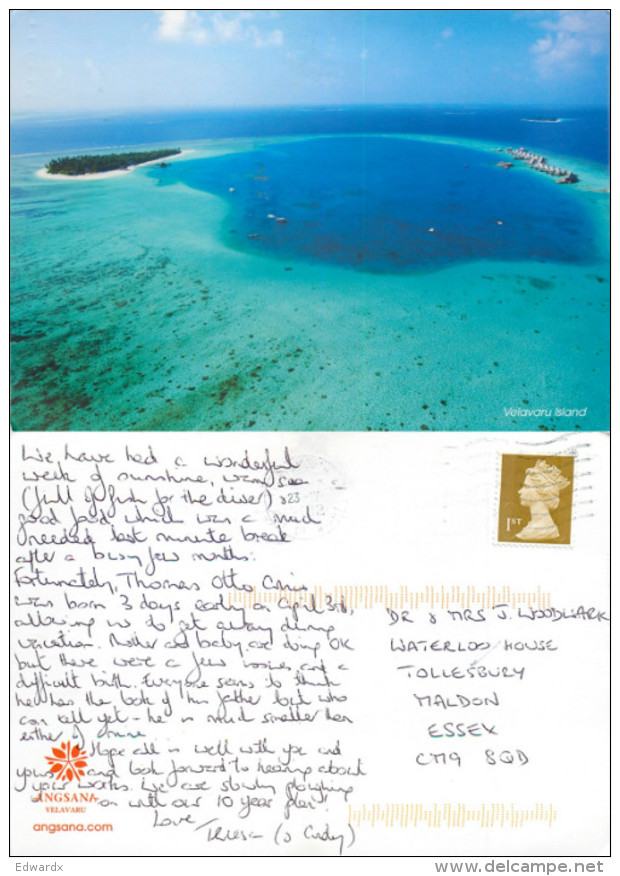 Velavaru Island
We have had a wonderful
week of sunshine, warm sea
(full of fish for the diver) &
good food which was a much
needed last minute break
after a busy few months.
Fortunately, Thomas Otto
was born 3 days early on April 3rd,
allowing us to get away during
vacation. Mother and baby are doing OK
but there were a few worries and a
difficult birth. Everyone seems to think
he has the look of his father but who
can tell yet - he is much smaller than
either of mine.
Hope all is well with you and
yours and look forward to hearing about
your works. We are slowly ploughing
on with our 10 year plan!
Love
Teresa (& Andy)
23
1ST
DR & MRS J. WOODLARK
WATERLOO HOUSE
TOLLESBURY
MALDON
ESSEX
CM9 8QD
ANGSANA
VELAVARU
angsana.com
Edwardx
www.delcampe.net